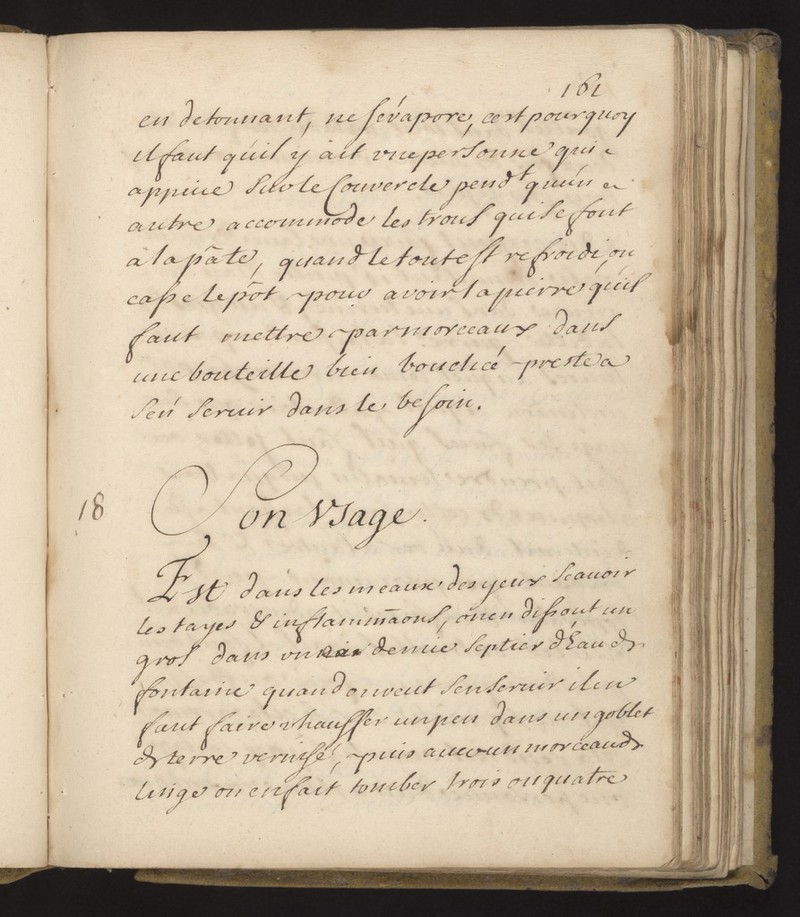 161
en detonnant, ne s'évapore, cest pourquoy
il faut quil y ait vne personne qui
appuie sur le Couvercle pendt. qu'un
autre accommode les trous qui se font
a la pâte, quand le tout est refroidi, on
casse le pôt pour avoir la pierre qu'il
faut mettre par morceaux dans
une bouteille bien bouchée preste a
s'en servir dans le besoin.
18
Son Vsage.
Est dans les meaux des yeux Scavoir
les tayes & inflammãons, on en dissout un
gros dans un demie Septier d'Eau de
fontaine quand on veut sen servir il en
faut faire chauffer un peu dans un goblet
de terre vernissé, puis avec un morceau de
linge on en fait tomber trois ou quatre